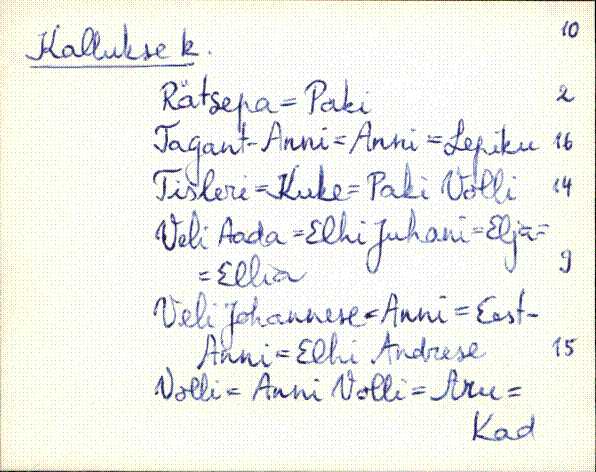 10
Kallukse k.
Rätsepa = Paki 2
Tagant-Anni = Anni = Lepiku 16
Tisleri = Kuke = Paki Volli 14
Veli Aada = Elhi Juhani = Elja =
= Ellia 9
Veli Johannese = Anni = Eest-
Anni = Elhi Andrese 15
Volli = Anni Volli = Aru =
Kad